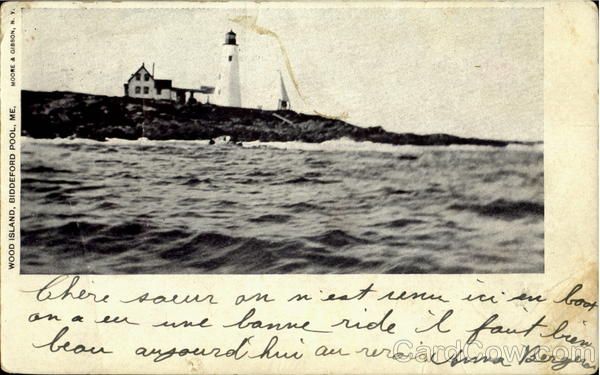 MOORE & GIBSON, N. Y.
WOOD ISLAND, BIDDEFORD POOL, ME.
Chère soeur on n'est venu ici en boat
on a eu une banne ride il fait bien
beau aujourd'hui au revoir Anna Bergeron
CardCow.com